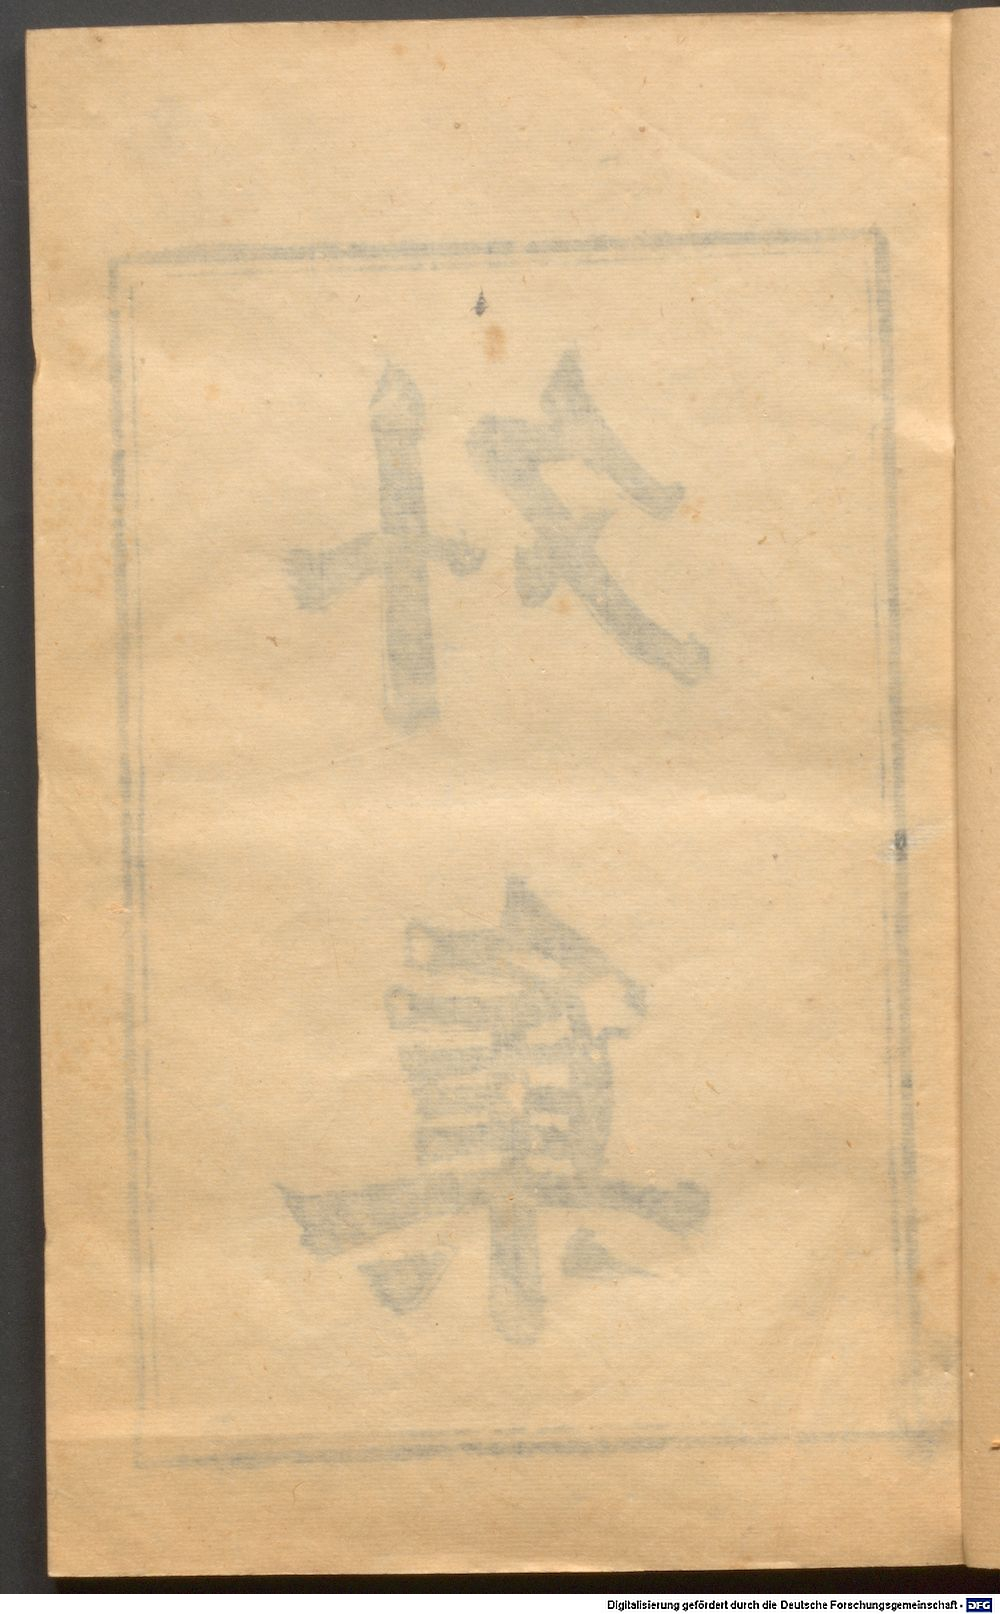 外集
Digitalisierung gefördert durch die Deutsche Forschungsgemeinschaft - DFG